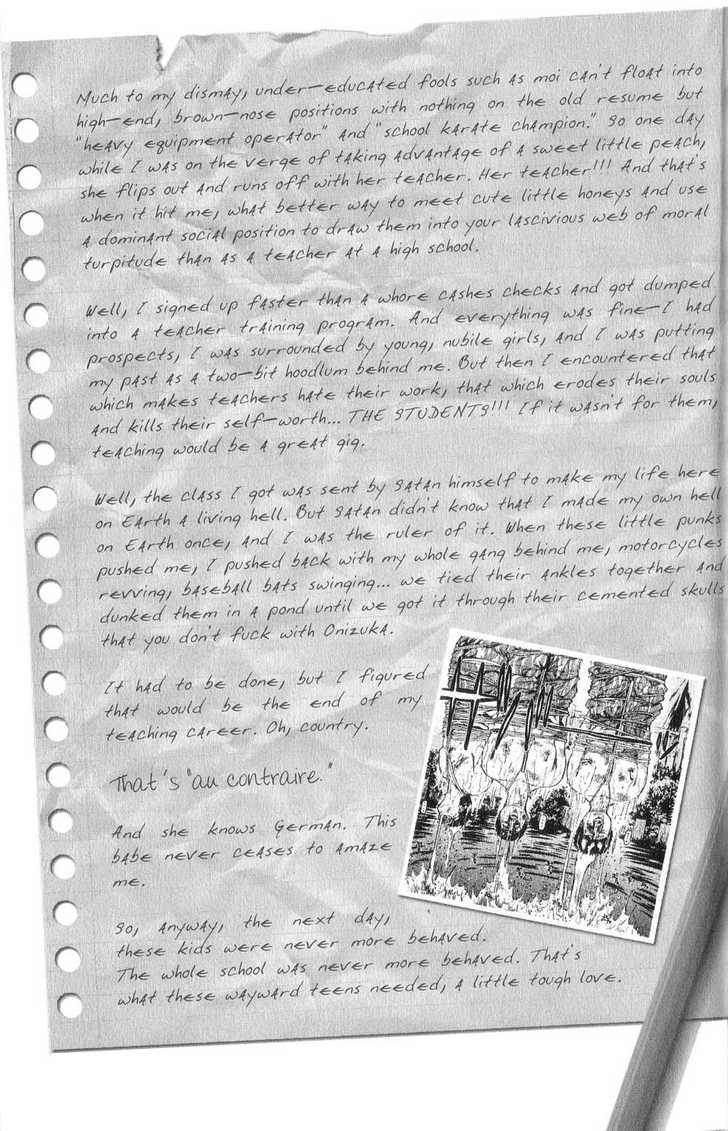 Much to my dismay, under-educated fools such as moi can't float into
high-end, brown-nose positions with nothing on the old resume but
"heavy equipment operator" and "school karate champion." So one day
while I was on the verge of taking advantage of a sweet little peach,
she flips out and runs off with her teacher. Her teacher!!! And that's
when it hit me, what better way to meet cute little honeys and use
a dominant social position to draw them into your lascivious web of moral
turpitude than as a teacher at a high school.
Well, I signed up faster than a whore cashes checks and got dumped
into a teacher training program. And everything was fine—I had
prospects, I was surrounded by young, nubile girls, and I was putting
my past as a two-bit hoodlum behind me. But then I encountered that
which makes teachers hate their work, that which erodes their souls
and kills their self-worth... THE STUDENTS!!! If it wasn't for them,
teaching would be a great gig.
Well, the class I got was sent by Satan himself to make my life here
on Earth a living hell. But Satan didn't know that I made my own hell
on Earth once, and I was the ruler of it. When these little punks
pushed me, I pushed back with my whole gang behind me, motorcycles
revving, baseball bats swinging... we tied their ankles together and
dunked them in a pond until we got it through their cemented skulls
that you don't fuck with Onizuka.
It had to be done, but I figured
that would be the end of my
teaching career. Oh, country.
That's "au contraire."
And she knows German. This
babe never ceases to amaze
me.
So, anyway, the next day,
these kids were never more behaved.
The whole school was never more behaved. That's
what these wayward teens needed, a little tough love.